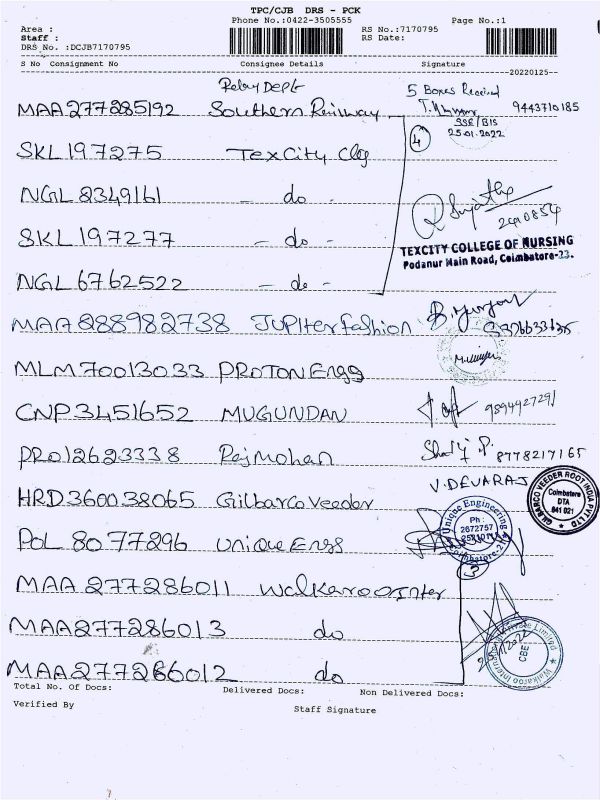 TPC/CJB DRS - PCK
Phone No.:0422-3505555
Page No.:1
Area :
Staff :
DRS No. :DCJB7170795
RS No.:7170795
RS Date:
S No Consignment No Consignee Details Signature
20220125
Relay Dept
5 Boxes Received
MAA277285192 Southern Railway 9443710185
SSE/BIS
25.01.2022
4
SKL197275 TexCity Clg
NGL8349161 - do -
SKL197277 - do -
TEXCITY COLLEGE OF NURSING
Podanur Main Road, Coimbatore-23.
NGL6762522 - do -
MAA288982738 Jupiter fashion
MLM70013033 PROTON Engg
CNP3451652 MUGUNDAN
PRO12623338 Rajmohan 8778217165
V. DEVARAJ
HRD360038065 Gilbarco Veeder
GILBARCO VEEDER ROOT INDIA PVT LTD
Coimbatore
DTA
641 021
POL 8077296 Unique Engg
Unique Engineering
Ph :
2672757
Coimbatore-21
MAA277286011 Walkaroo Inter
3
MAA277286013 do
MAA277286012 do
Walkaroo International Private Limited
CBE
Total No. Of Docs: Delivered Docs: Non Delivered Docs:
Verified By
Staff Signature